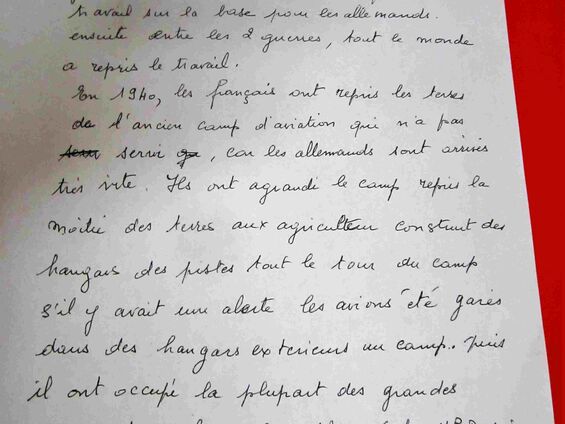 travail sur la base pour les allemands.
ensuite entre les 2 guerres, tout le monde
a repris le travail.
En 1940, les français ont repris les terres
de l'ancien camp d'aviation qui n'a pas
servir, car les allemands sont arrivés
très vite. Ils ont agrandi le camp repris la
moitié des terres aux agriculteur construit des
hangars des pistes tout le tour du camp
s'il y avait une alerte les avions été garés
dans des hangars exterieurs au camp. Puis
il ont occupé la plupart des grandes